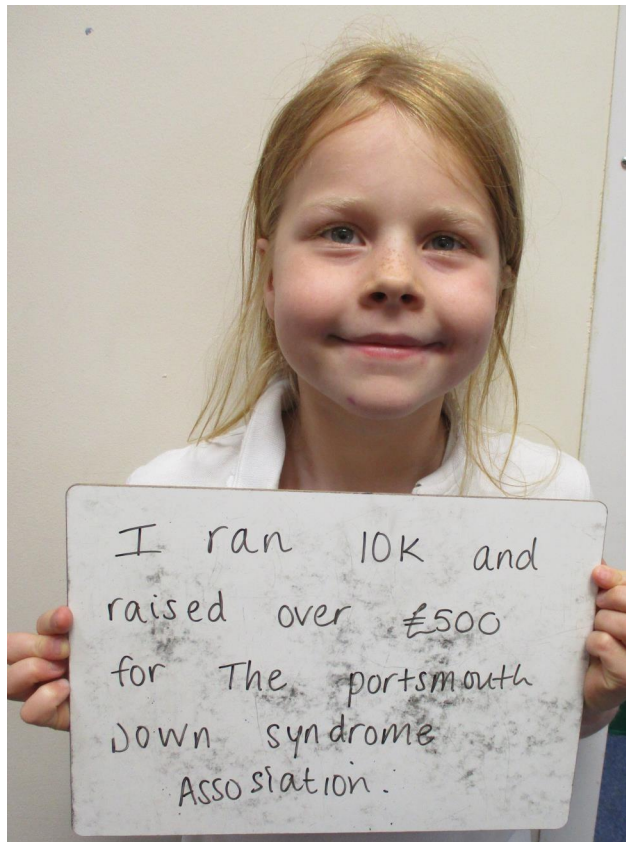 I ran 10K and
raised over £500
for The portsmouth
Down syndrome
Assosiation.